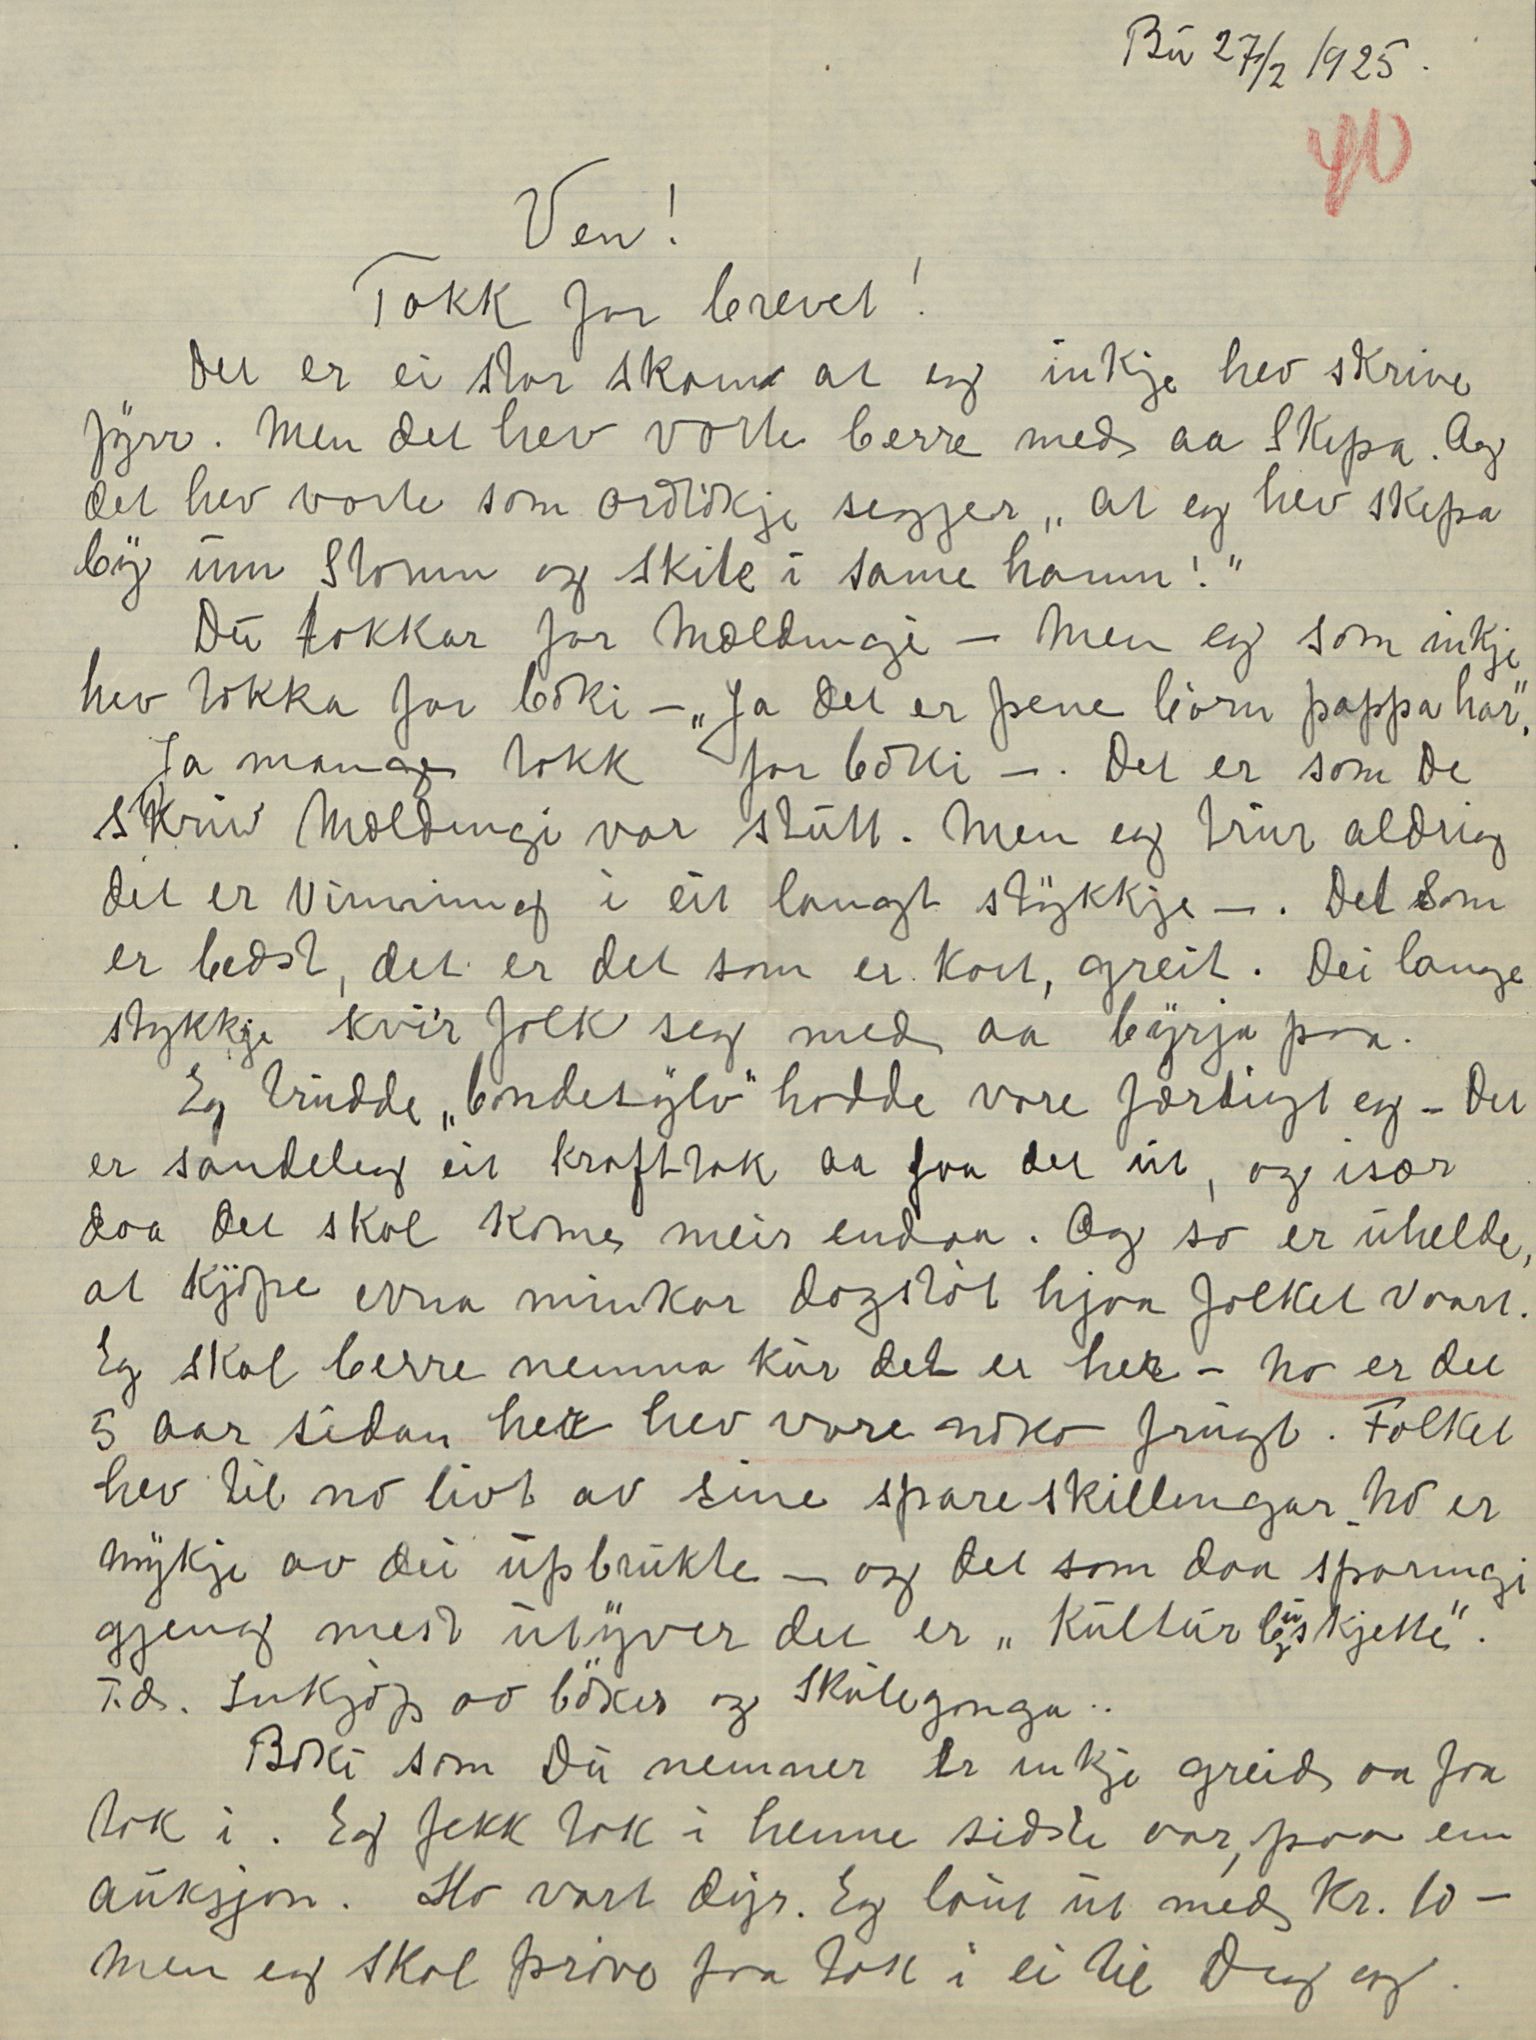 Bü 27/2 1925.
Ven!
Takk for brevet!
Det er ei stor skam at eg inkje hev skrive
fyrr. Men det hev vorte berre med aa skipa. Og
det hev vorte som ordtökje segjer „at eg hev skipa
bÿ um Stomm og skite i same hamn!"
Du takkar for Mældingi – men eg som inkje
hev takka for böki – „Ja det er pene börn pappa har".
Ja mange takk for böki –. Det er som De
skriv Mældingi var stutt. Men eg trur aldrig
det er Vinning i eit langt stÿkkje –. Det som
er bedst, det er det som er kort, greit. Dei lange
stykkje kvir folk seg med aa bÿrja paa.
Eg trudde „bondesÿlv" hadde vore færdigt eg – Det
er sandeleg eit krafttak aa faa det ut, og især
daa det skal kome meir endaa. Og so er uhelde,
at kjöpe evna minkar dagstöt hjaa folket vaart.
Eg skal berre nemna kur det er her – no er det
5 aar sidan her hev vore noko frugt. Folket
hev til no livt av sine spareskillengar. No er
mÿkje av dei upbrukte – og det som daa sparingi
gjeng mest utÿver det er „Kulturbuskjette".
T.d. Inkjöp av böker og Skulegonga..
Böki som Du nemner er inkje greid aa faa
tak i. Eg fekk tak i henne sidste vaar, paa ein
auksjon. Ho vart dyr. Eg laut ut med Kr. 10 –
men eg skal pröve faa tak i ei til Deg og.